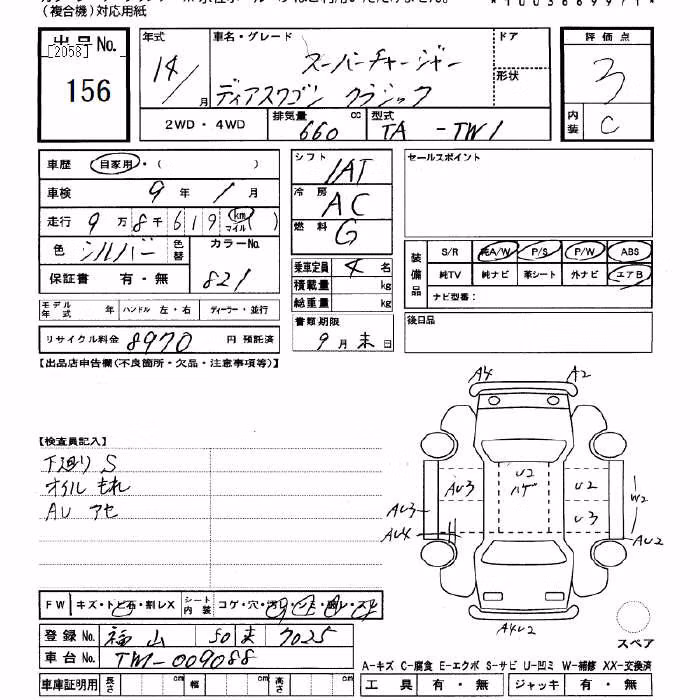 (複合機)対応用紙
*1003669971*
出品No. 年式 車名・グレード ドア 評価点
[2058]
156 14/ 月 スーパーチャージャー 形状 3
ディアスワゴン クラシック
2WD・4WD 排気量 660 cc 型式 TA-TW1 内装 C
車歴 自家用・( )
車検 9年 1月
走行 9万 8千 6 1 9 km マイル ( )
色 シルバー 色替 カラーNo.
保証書 有・無 821
モデル年式 年 ハンドル 左・右 ディーラー・並行
リサイクル料金 8970 円 預託済
シフト IAT
冷房 AC
燃料 G
乗車定員 4 名
積載量 kg
総重量 kg
書類期限
9月末日
セールスポイント
装備品 S/R 純A/W P/S P/W ABS
純TV 純ナビ 革シート 外ナビ エアB
ナビ型番:
後日品
【出品店申告欄(不良箇所・欠品・注意事項等)】
【検査員記入】
下廻り S
オイルもれ
AU アセ
A4 A2
AU3 U2 ハゲ U2
AU3 U3 W2
AU4 AU2
A4U2
スペア
FW キズ・トビ石・割レX シート内装 コゲ・穴・汚レ・シミ・破レ・スレ
登録No. 福山 50 ま 7025
車台No. TW1-009088
車庫証明用 長さ cm 幅 cm 高さ cm
A-キズ C-腐食 E-エクボ S-サビ U-凹ミ W-補修 XX-交換済
工具 有・無 ジャッキ 有・無